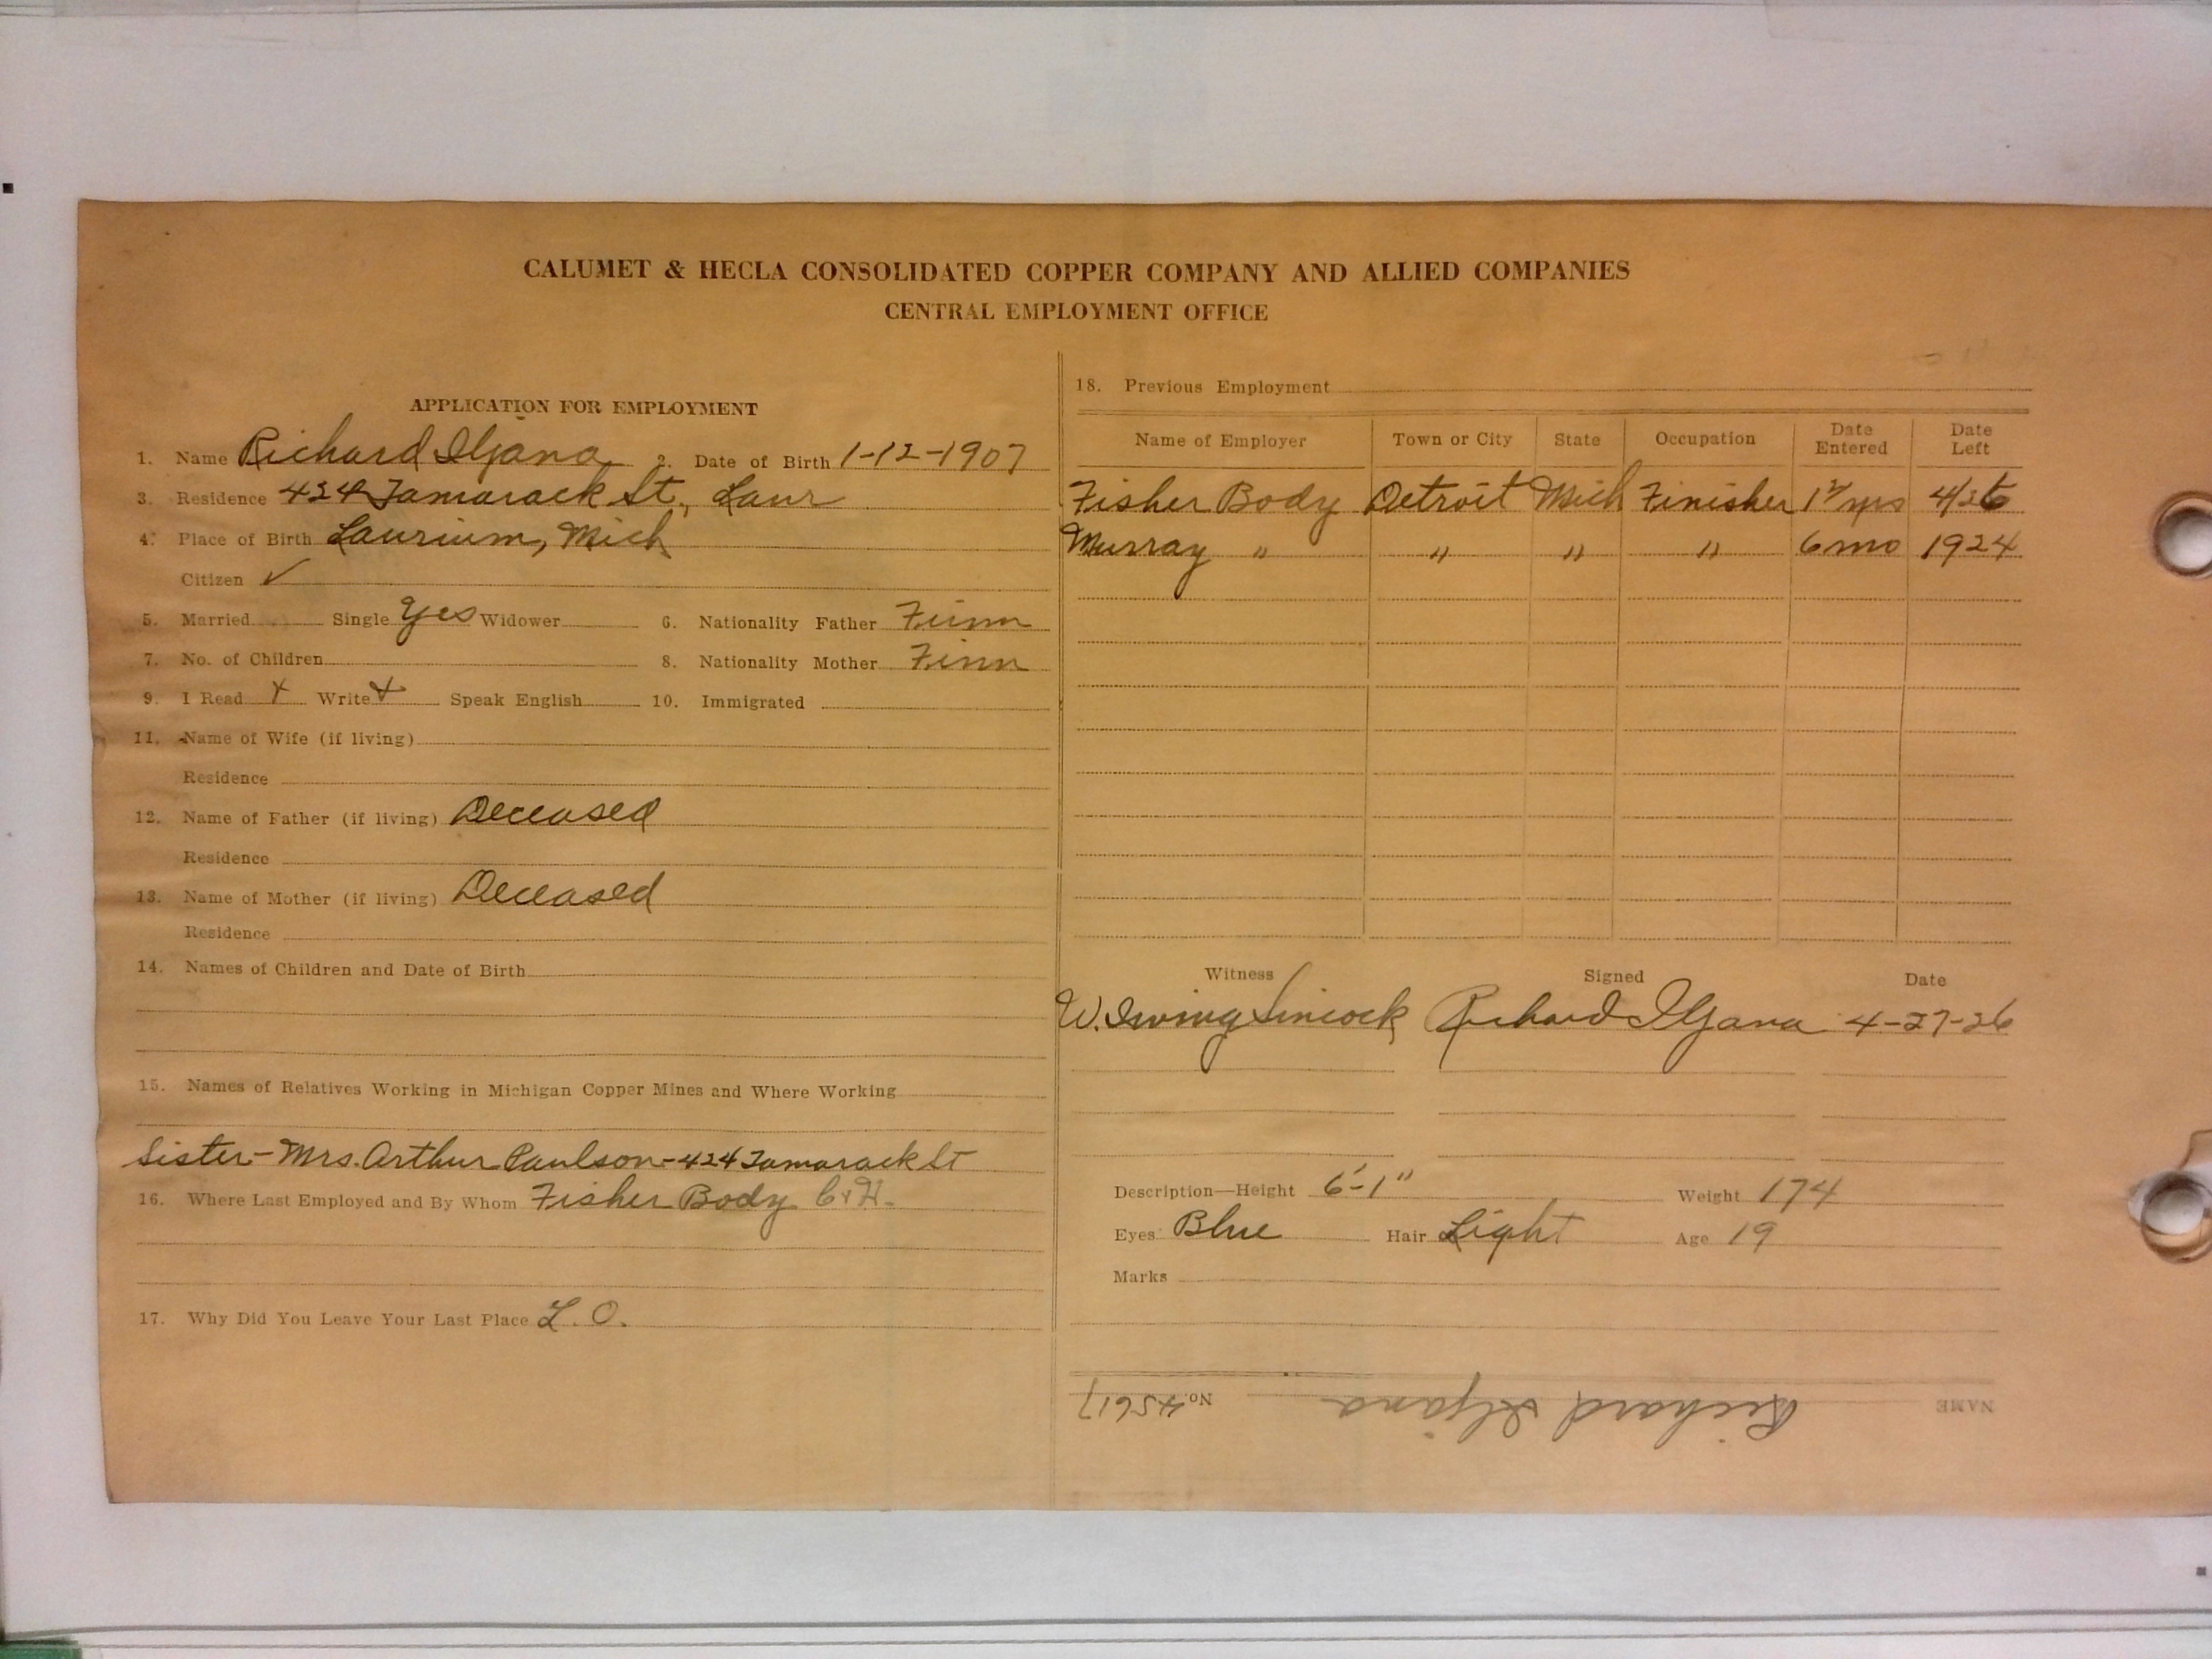 CALUMET & HECLA CONSOLIDATED COPPER COMPANY AND ALLIED COMPANIES
CENTRAL EMPLOYMENT OFFICE
APPLICATION FOR EMPLOYMENT
1. Name Richard Iljana 2. Date of Birth 1-12-1907
3. Residence 424 Tamarack St., Laur
4. Place of Birth Laurium, Mich
Citizen ✓
5. Married Single Yes Widower 6. Nationality Father Finn
7. No. of Children 8. Nationality Mother Finn
9. I Read X Write X Speak English 10. Immigrated
11. Name of Wife (if living)
Residence
12. Name of Father (if living) Deceased
Residence
13. Name of Mother (if living) Deceased
Residence
14. Names of Children and Date of Birth
15. Names of Relatives Working in Michigan Copper Mines and Where Working
Sister - Mrs. Arthur Paulson - 424 Tamarack St
16. Where Last Employed and By Whom Fisher Body C&H.
17. Why Did You Leave Your Last Place L. O.
18. Previous Employment
Name of Employer Town or City State Occupation Date Entered Date Left
Fisher Body Detroit Mich Finisher yrs 4/26
Murray " " " " 6 mo 1924
Witness Signed Date
W. Irving Sincock Richard Iljana 4-27-26
Description—Height 6'-1" Weight 174
Eyes Blue Hair Light Age 19
Marks
NAME Richard Iljana No. 45617